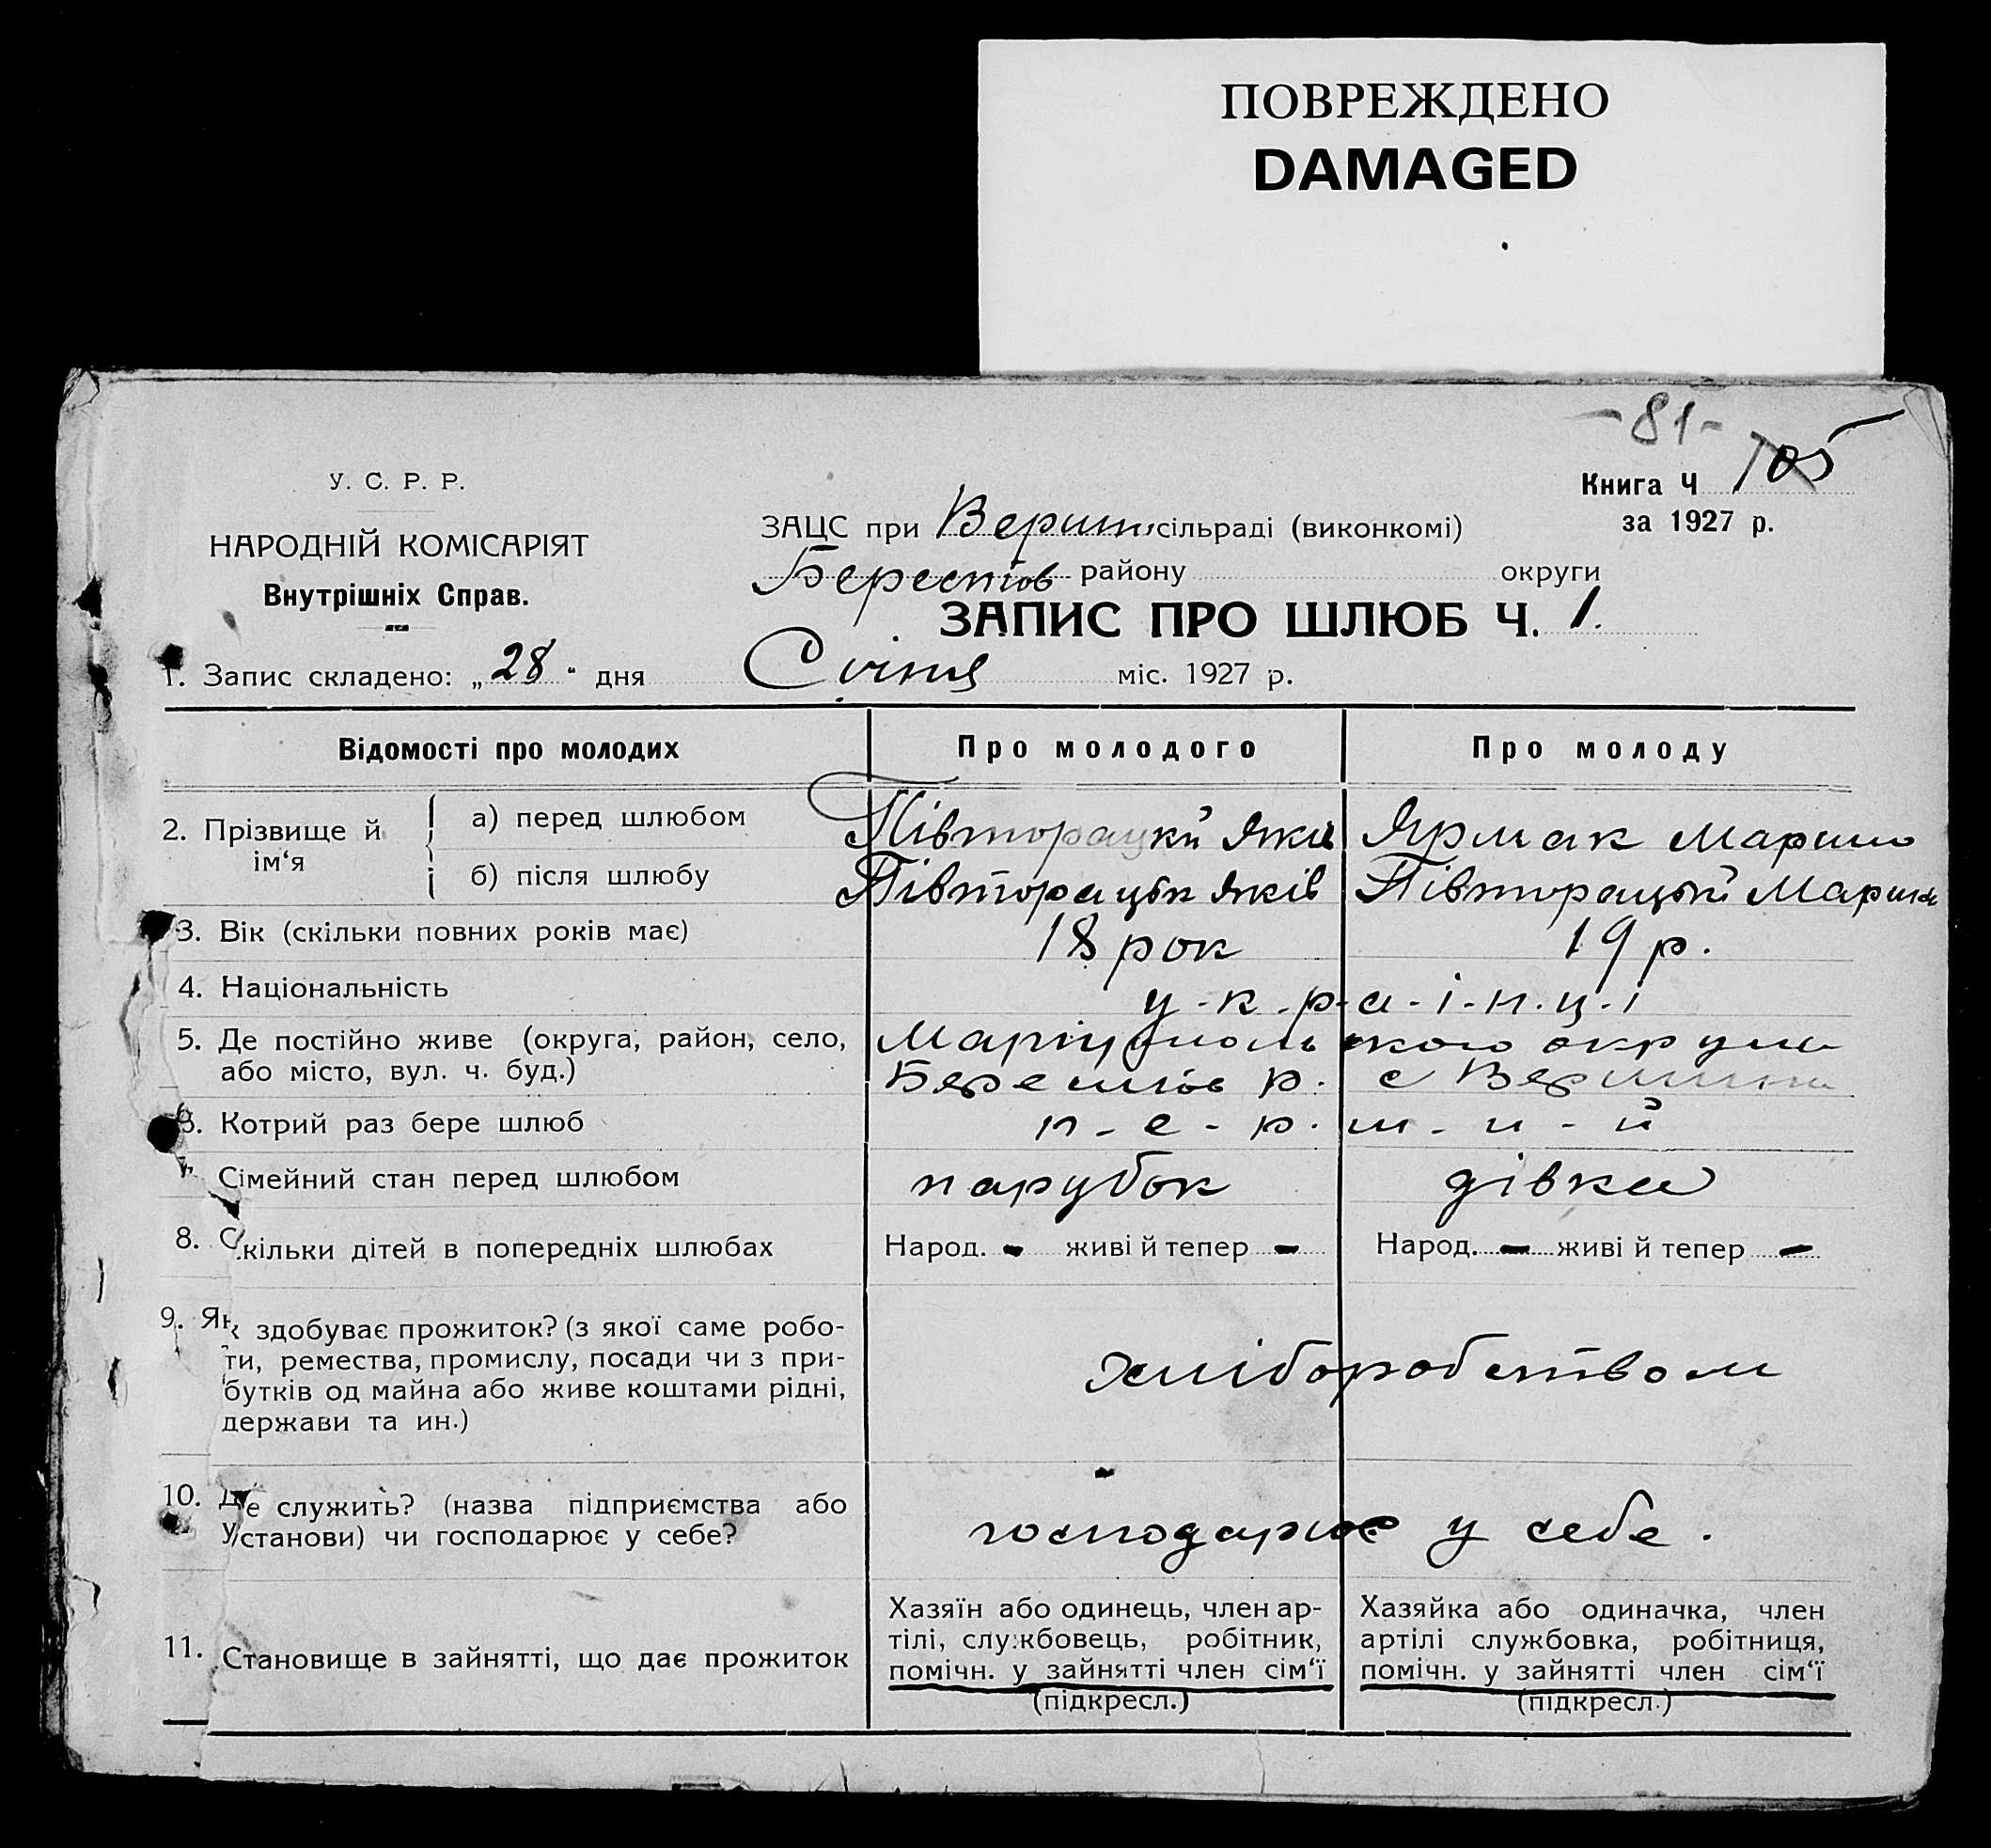 ПОВРЕЖДЕНО
DAMAGED
-81-
У. С. Р. Р.
НАРОДНІЙ КОМІСАРІЯТ
Внутрішніх Справ.
Книга Ч 105
за 1927 р.
ЗАЦС при Верш. сільраді (виконкомі)
Берестов району округи
ЗАПИС ПРО ШЛЮБ Ч. 1.
1. Запис складено: „28“ дня Січня міс. 1927 р.
Відомості про молодих Про молодого Про молоду
2. Прізвище й ім‘я
а) перед шлюбом Півторацкй Яків Ярмак Марина
б) після шлюбу Півторацькй Яків Півторацькй Марина
3. Вік (скільки повних років має) 18 рок 19 р.
4. Національність у-к-р-а-ї-н-ц-і
5. Де постійно живе (округа, район, село, Маріупольского округи
або місто, вул. ч. буд.) Берестов р. с Вершина
6. Котрий раз бере шлюб п-е-р-ш-и-й
7. Сімейний стан перед шлюбом парубок дівка
8. Скільки дітей в попередніх шлюбах Народ. - живі й тепер - Народ. - живі й тепер -
9. Як здобуває прожиток? (з якої саме робо-
ти, ремества, промислу, посади чи з при-
бутків од майна або живе коштами рідні,
держави та ин.)
хліборобством
10. Де служить? (назва підприємства або
Установи) чи господарює у себе?
господарює у себе.
11. Становище в зайнятті, що дає прожиток
Хазяїн або одинець, член ар-
тілі, службовець, робітник,
помічн. у зайнятті член сім‘ї
(підкресл.)
Хазяйка або одиначка, член
артілі службовка, робітниця,
помічн. у зайнятті член сім‘ї
(підкресл.)